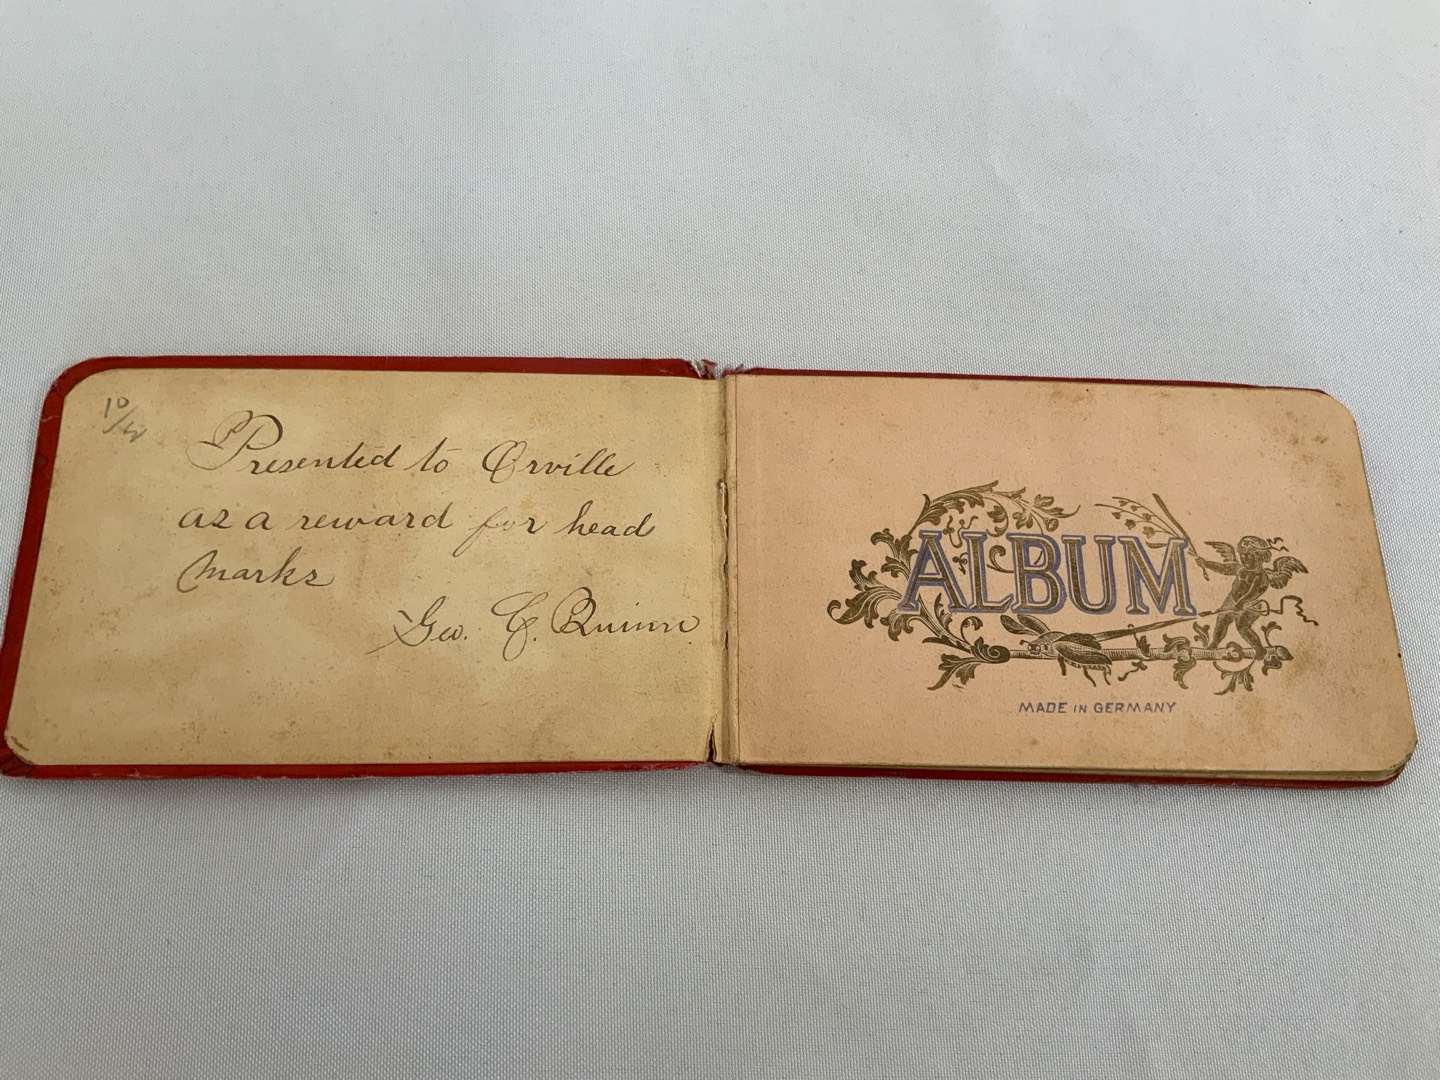 Presented to Orville
as a reward for head
marks
Geo. C. Quinn
ALBUM
MADE IN GERMANY